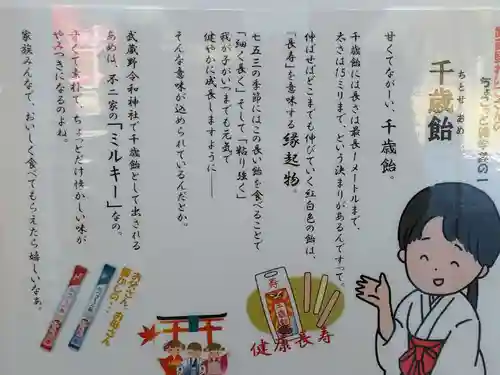 千歳飴
ちとせあめ
甘くてながーい、千歳飴。
千歳飴には長さは最長1メートルまで、
太さは15ミリまで、という決まりがあるんですって。
伸ばせばどこまでも伸びていく紅白色の飴は、
「長寿」を意味する縁起物。
七五三の季節にはこの長い飴を食べることで
「細く長く」そして「粘り強く」
我が子がいつまでも元気で
健やかに成長しますように――
そんな意味が込められているんだとか。
武蔵野令和神社で千歳飴として出される
あめは、不二家の「ミルキー」なの。
甘くて素朴で、ちょっとだけ懐かしい味が
やみつきになるのよね。
家族みんなで、おいしく食べてもらえたら嬉しいなぁ。
お父さん、お母さん
寿
千歳飴
健康長寿